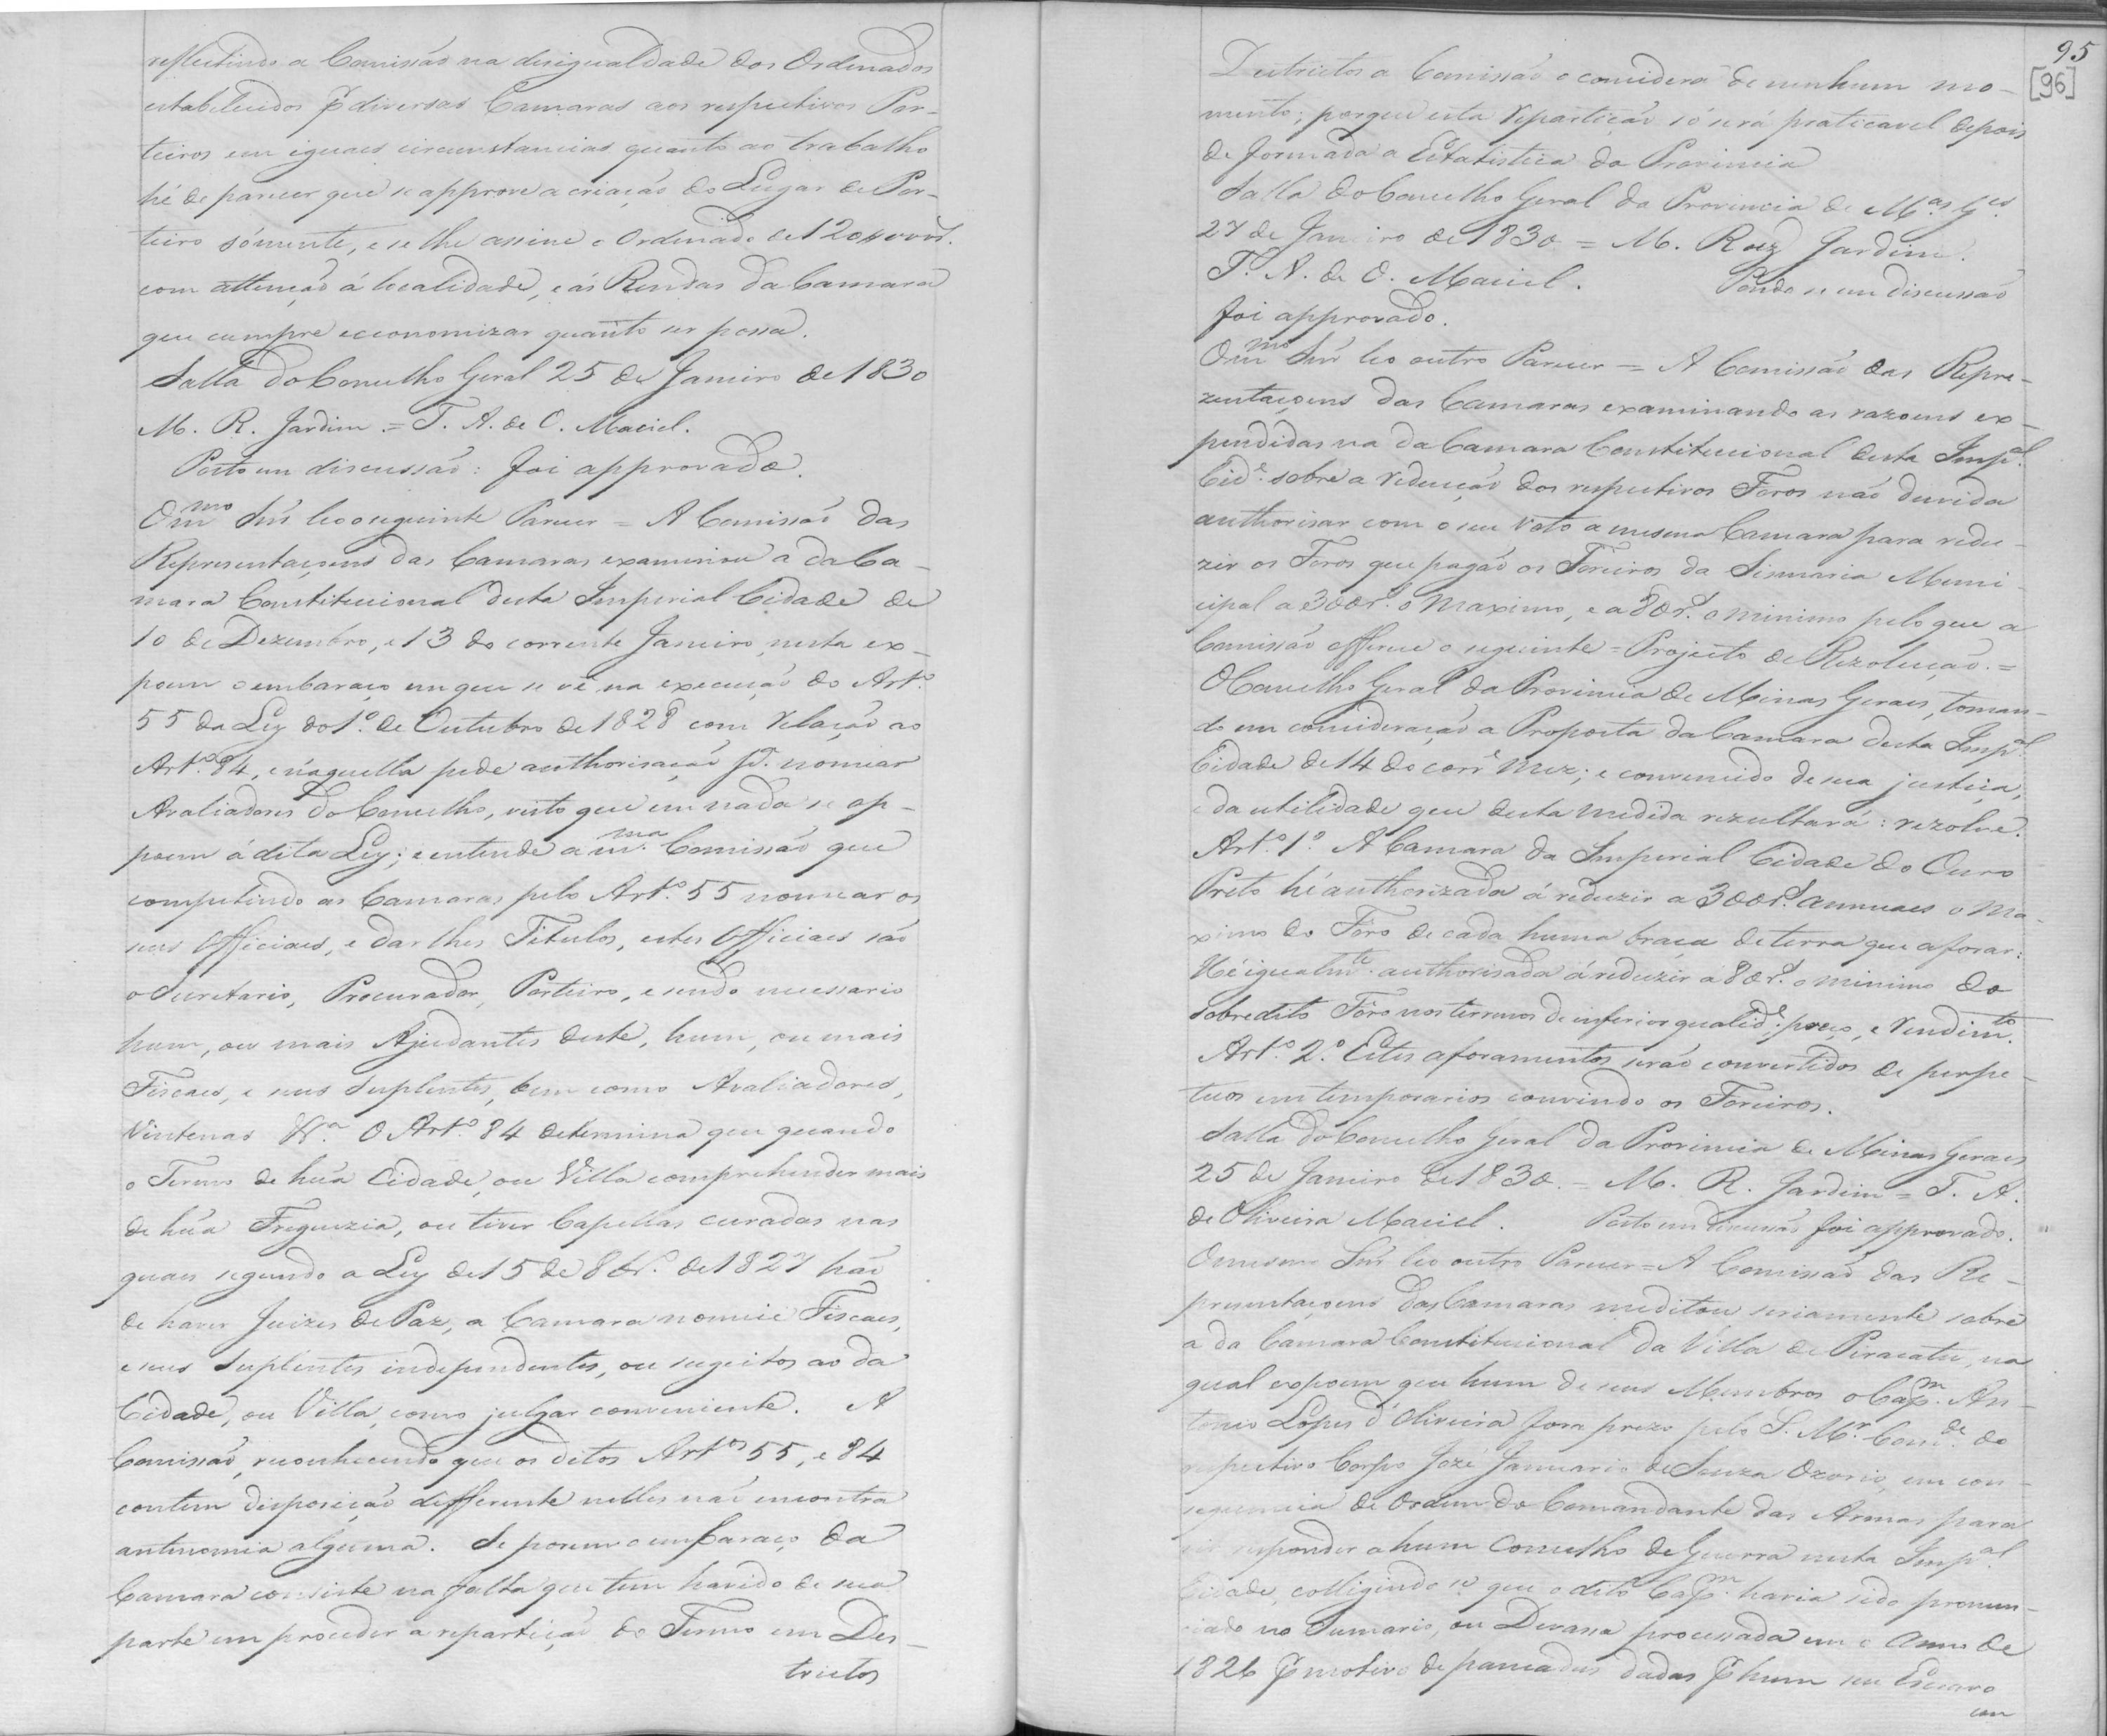 reflectindo a Comissão na desigualdade dos Ordenados
estabelecidos p diversas Camaras aos respectivos Por-
teiros em iguaes circunstancias quanto ao trabalho
hé de parecer que se approve a criação do Lugar de Por-
teiro sómente, e se lhe assine o Ordenado de 120$000 rs.
com attenção á localidade, e ás Rendas da Camara
que cumpre economizar quanto ser possa.
Salla do Concelho Geral 25 de Janeiro de 1830
M. R. Jardim. = T. A. de O. Maciel.
Posto em discussão: foi approvado.
O mmo Snr leo o seguinte Parecer = A Comissão das
Representaçoens das Camaras examinou a da Ca-
mara Constitucional desta Imperial Cidade de
10 de Dezembro, e 13 do corrente Janeiro, nesta ex-
poem o embaraço em que se vê na execução do Art.o
55 da Ley do 1.o de Outubro de 1828 com relação ao
Art.o 84, e naquella pede authorisação p.a nomear
Avaliadores do Concelho, visto que em nada se op-
poem á dita Ley; e entende a mma Comissão que
competindo as Camaras pelo Art.o 55 nomear os
seus Officiaes, e dar lhes Titulos, estes Officiaes são
o Secretario, Procurador, Porteiro, e sendo necessario
hum, ou mais Ajudantes deste, hum, ou mais
Fiscaes, e seus Suplentes, bem como Avaliadores,
Vintenas &.a O Art.o 84 determina que quando
o Termo de huã Cidade, ou Villa comprehender mais
de huã Freguezia, ou tiver Capellas curadas nas
quaes segundo a Ley de 15 de 8br.o de 1827 hão
de haver Juizes de Paz, a Camara nomeie Fiscaes,
e seus Suplentes independentes, ou sugeitos ao da
Cidade, ou Villa, como julgar conveniente. A
Comissão, reconhecendo que os ditos Art.os 55, e 84
contem disposição differente nelles não encontra
antinomia alguma. Se porem o embaraço da
Camara consiste na falta que tem havido de sua
parte em proceder a repartição do Termo em Des-
trictos
95
[96]
Destrictos a Comissão o considera de nenhum mo-
mento; porque esta repartição só será praticavel depois
de formada a Estatistica da Provincia
Salla do Concelho Geral da Provincia de M.as G.es
27 de Janeiro de 1830 = M. Roiz Jardim.
T. A. de O. Maciel. Pondo se em discussão
foi approvado.
O mmo Snr leo outro Parecer = A Comissão das Repre-
zentaçoens das Camaras examinando as razoens ex-
pendidas na da Camara Constitucional desta Imp.al
Cid.e sobre a reducção dos respectivos Foros não duvida
authorisar com o seu Voto a mesma Camara para redu-
zir os Foros que pagão os Foreiros da Sismaria Muni-
cipal a 300 r.s o Maximo, e a 80 r.s o minimo pelo que a
Comissão offerece o seguinte = Projecto de Rezolução. =
O Concelho Geral da Provincia de Minas Geraes, toman-
do em consideração a Proposta da Camara desta Imp.al
Cidade de 14 do corr.e Mez; e convencido de sua justiça,
e da utilidade que desta medida rezultará: rezolve.
Art.o 1.o A Camara da Imperial Cidade do Ouro
Preto hé authorizada á reduzir a 300 r.s annuaes o Ma-
ximo do Foro de cada huma braça de terra que aforar:
Hé igualm.te authorisada á reduzir a 80 r.s o minimo do
sobredito Foro nos terrenos de inferior qualid.e, preço, e rendim.to
Art.o 2.o Estes aforamentos serão convertidos de perpe-
tuos em temporarios convindo os Foreiros.
Salla do Concelho Geral da Provincia de Minas Geraes
25 de Janeiro de 1830. = M. R. Jardim = T. A.
de Oliveira Maciel. Posto em discussão foi approvado.
O mesmo Snr leo outro Parecer = A Comissão das Re-
presentaçoens das Camaras meditou seriamente sobre
a da Camara Constitucional da Villa de Piracatu, na
qual expoem que hum de seus Membros o Cap.m An-
tonio Lopes d'Oliveira fora prezo pelo S. M.r Com.de do
respectivo Corpo Jozé Januario de Souza Ozorio, em con-
sequencia de Ordem do Comandante das Armas para
vir responder a hum Conselho de Guerra nesta Imp.al
Cidade, colligindo se que o dito Cap.m havia sido pronun-
ciado no Sumario, ou Devassa processada em o Anno de
1826 p motivo de pancadas dadas p hum seu Escravo
em